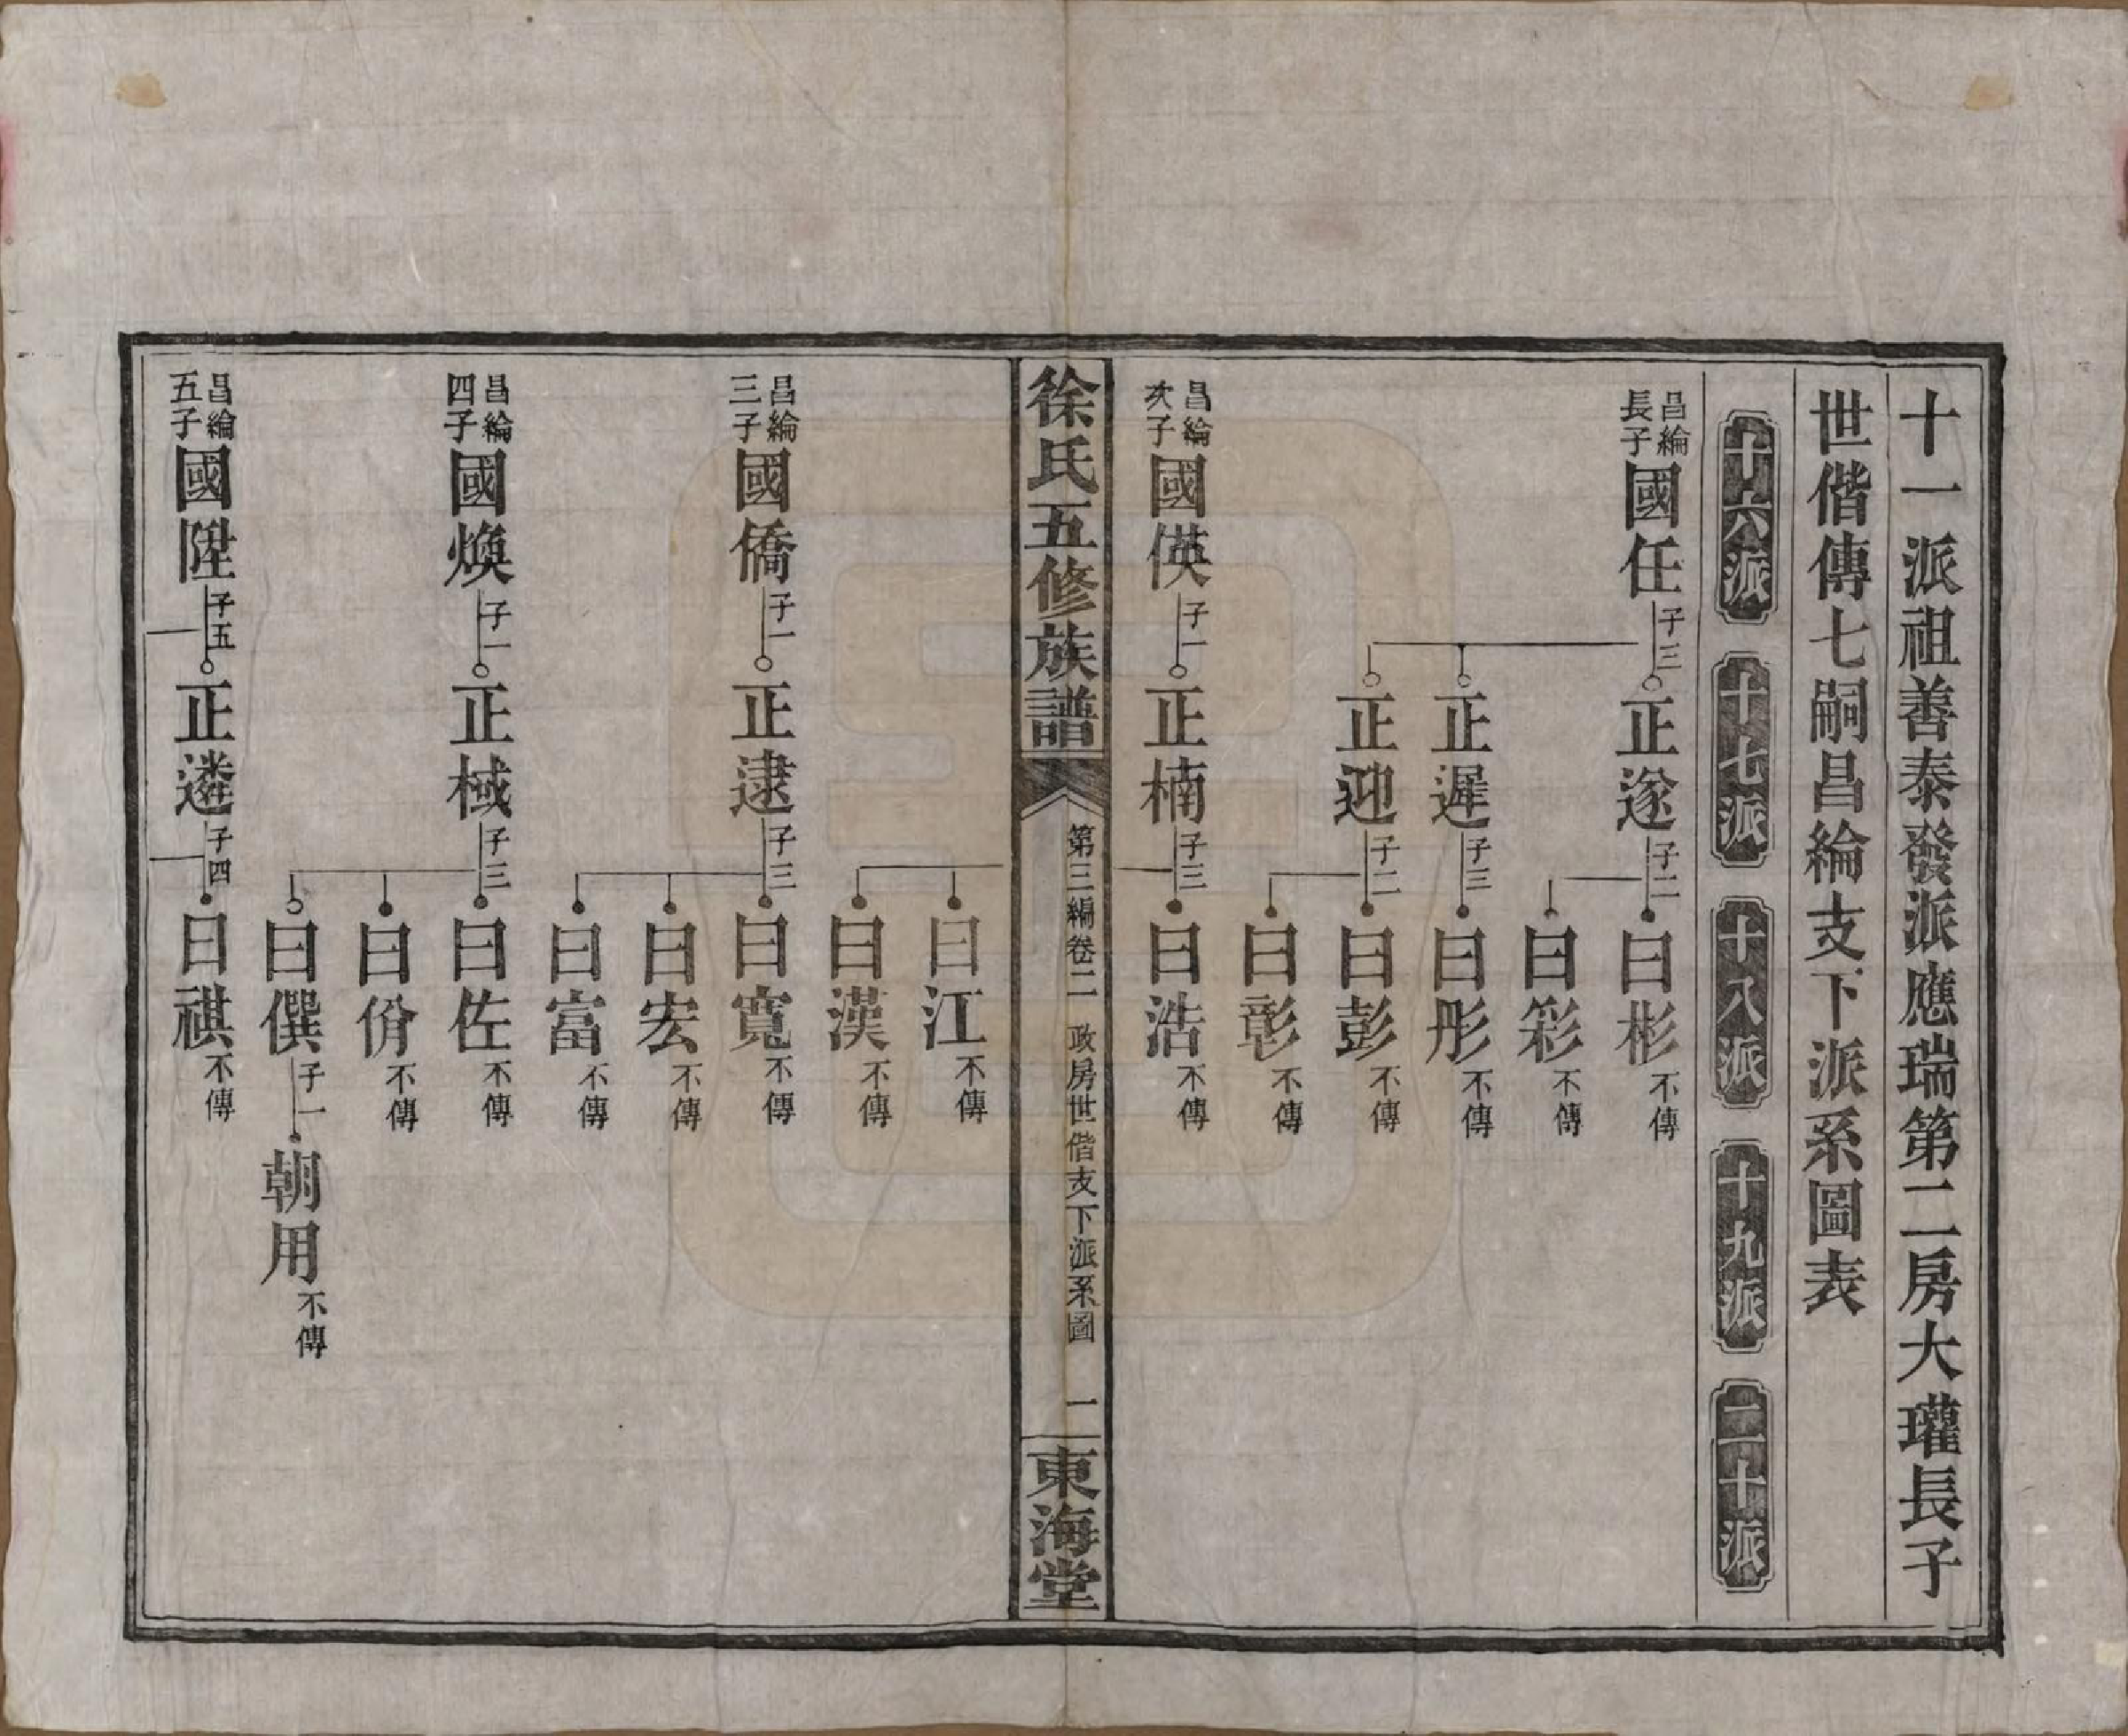 十一派祖善泰發派應瑞第二房大瓘長子
世偕傳七嗣昌綸支下派系圖表
十六派 十七派 十八派 十九派 二十派
昌綸長子 國任 子三 正遂 子二 曰彬 不傳
曰彩 不傳
正遲 子三 曰彤 不傳
正迎 子二 曰彭 不傳
曰彰 不傳
昌綸次子 國偀 子一 正楠 子三 曰浩 不傳
徐氏五修族譜 第三編卷二 政房世偕支下派系圖 一 東海堂
曰江 不傳
曰漢 不傳
昌綸三子 國僑 子一 正逮 子三 曰寬 不傳
曰宏 不傳
曰富 不傳
昌綸四子 國煥 子一 正棫 子三 曰佐 不傳
曰佾 不傳
曰僎 子一 朝用 不傳
昌綸五子 國陞 子五 正遴 子四 曰祺 不傳